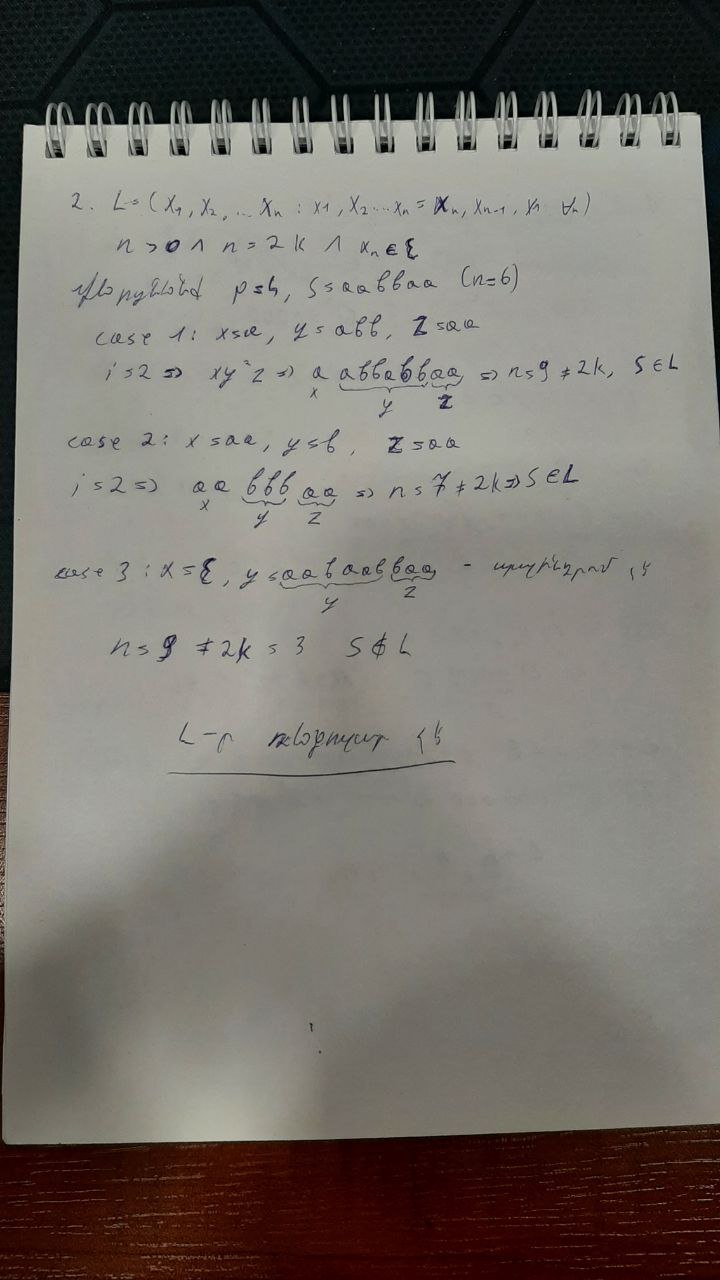 2. L = (x₁, x₂, ... xₙ : x₁, x₂ ... xₙ = xₙ, xₙ₋₁, x₁ ∀ₙ)
n > 0 ∧ n = 2k ∧ xₙ ∈ Σ
p = 4, S = aabbaa (n=6)
case 1: x = a, y = abb, z = aa
i = 2 => xy²z => a abbabbaa => n = 9 ≠ 2k, S ∈ L
x y z
case 2: x = aa, y = b, z = aa
i = 2 => aa bbb aa => n = 7 ≠ 2k => S ∈ L
x y z
case 3: x = ξ, y = aabaabbaa - է
y z
n = 9 ≠ 2k = 3 S ∉ L
L-ը ռեգուլյար չէ